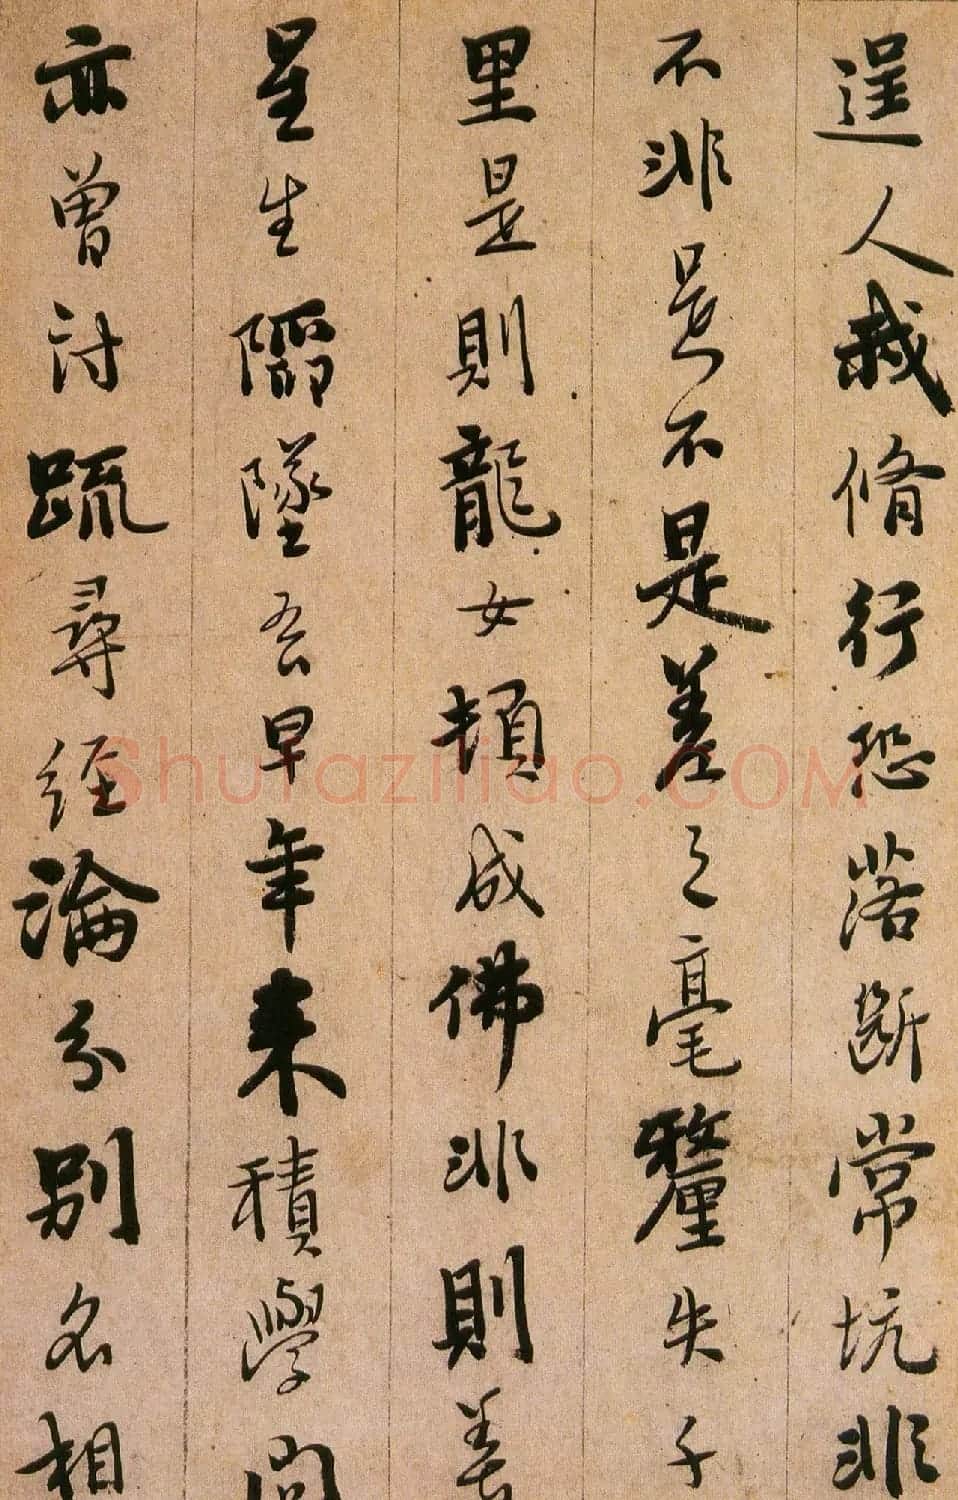 逞人我脩行恐落斷常坑非
不非是不是差之毫釐失千
里是則龍女頓成佛非則善
星生陷墜吾早年來積學問
亦曾討疏尋經論分別名相
Shufaziliao.COM